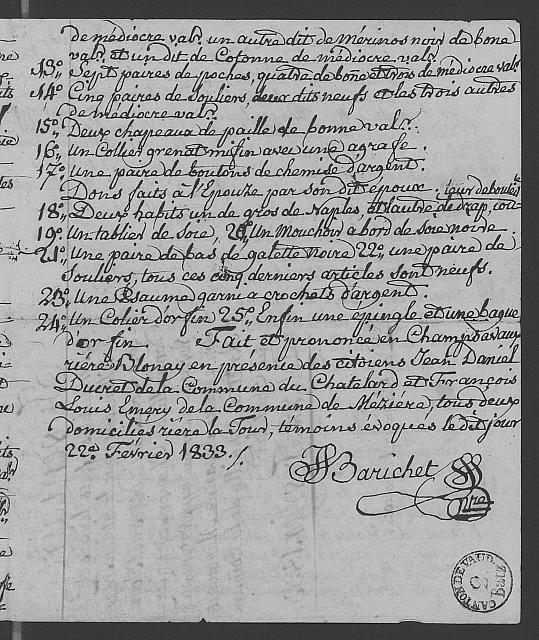 de médiocre valr. un autre dit de Mérinos noir de bone
valr. et un dit de Cotonne de médiocre valr.
13°. Sept paires de poches, quatre de bone et trois de médiocre valr.
14°. Cinq paires de Souliers, deux dits neufs et les trois autres
de médiocre valr.
15°. Deux chapeaux de paille de bonne valr.
16°. un Collier grenat mifin avec une agrafe.
17°. une paire de boutons de chemise d'argent.
Dons faits à l'Epouze par son dit époux;
18°. Deux habits un de gros de Naples, et l'autre de drap, cou-
leur de bouteille
19°. Un tablier de Soie, 20°. Un Mouchoir à bord de soie noire.
21°. Une paire de bas de galette noire 22°. une paire de
Souliers, tous ces cinq derniers articles sont neufs.
23°. Une Psaume garni a crochets d'argent.
24°. Un Colier d'or fin 25°. Enfin une épingle et une bague
d'or fin. Fait et prononcé en Champ
rière Blonay en présence des citoiens Jean Daniel
Ducret de la Commune du Chatelard et François
Louis Emery de la Commune de Mézière, tous deux
domiciliés rière la Tour, témoins évoqués le dit jour
22e. Février 1833./.
Barichet
nre
CANTON DE VAUD
Batz